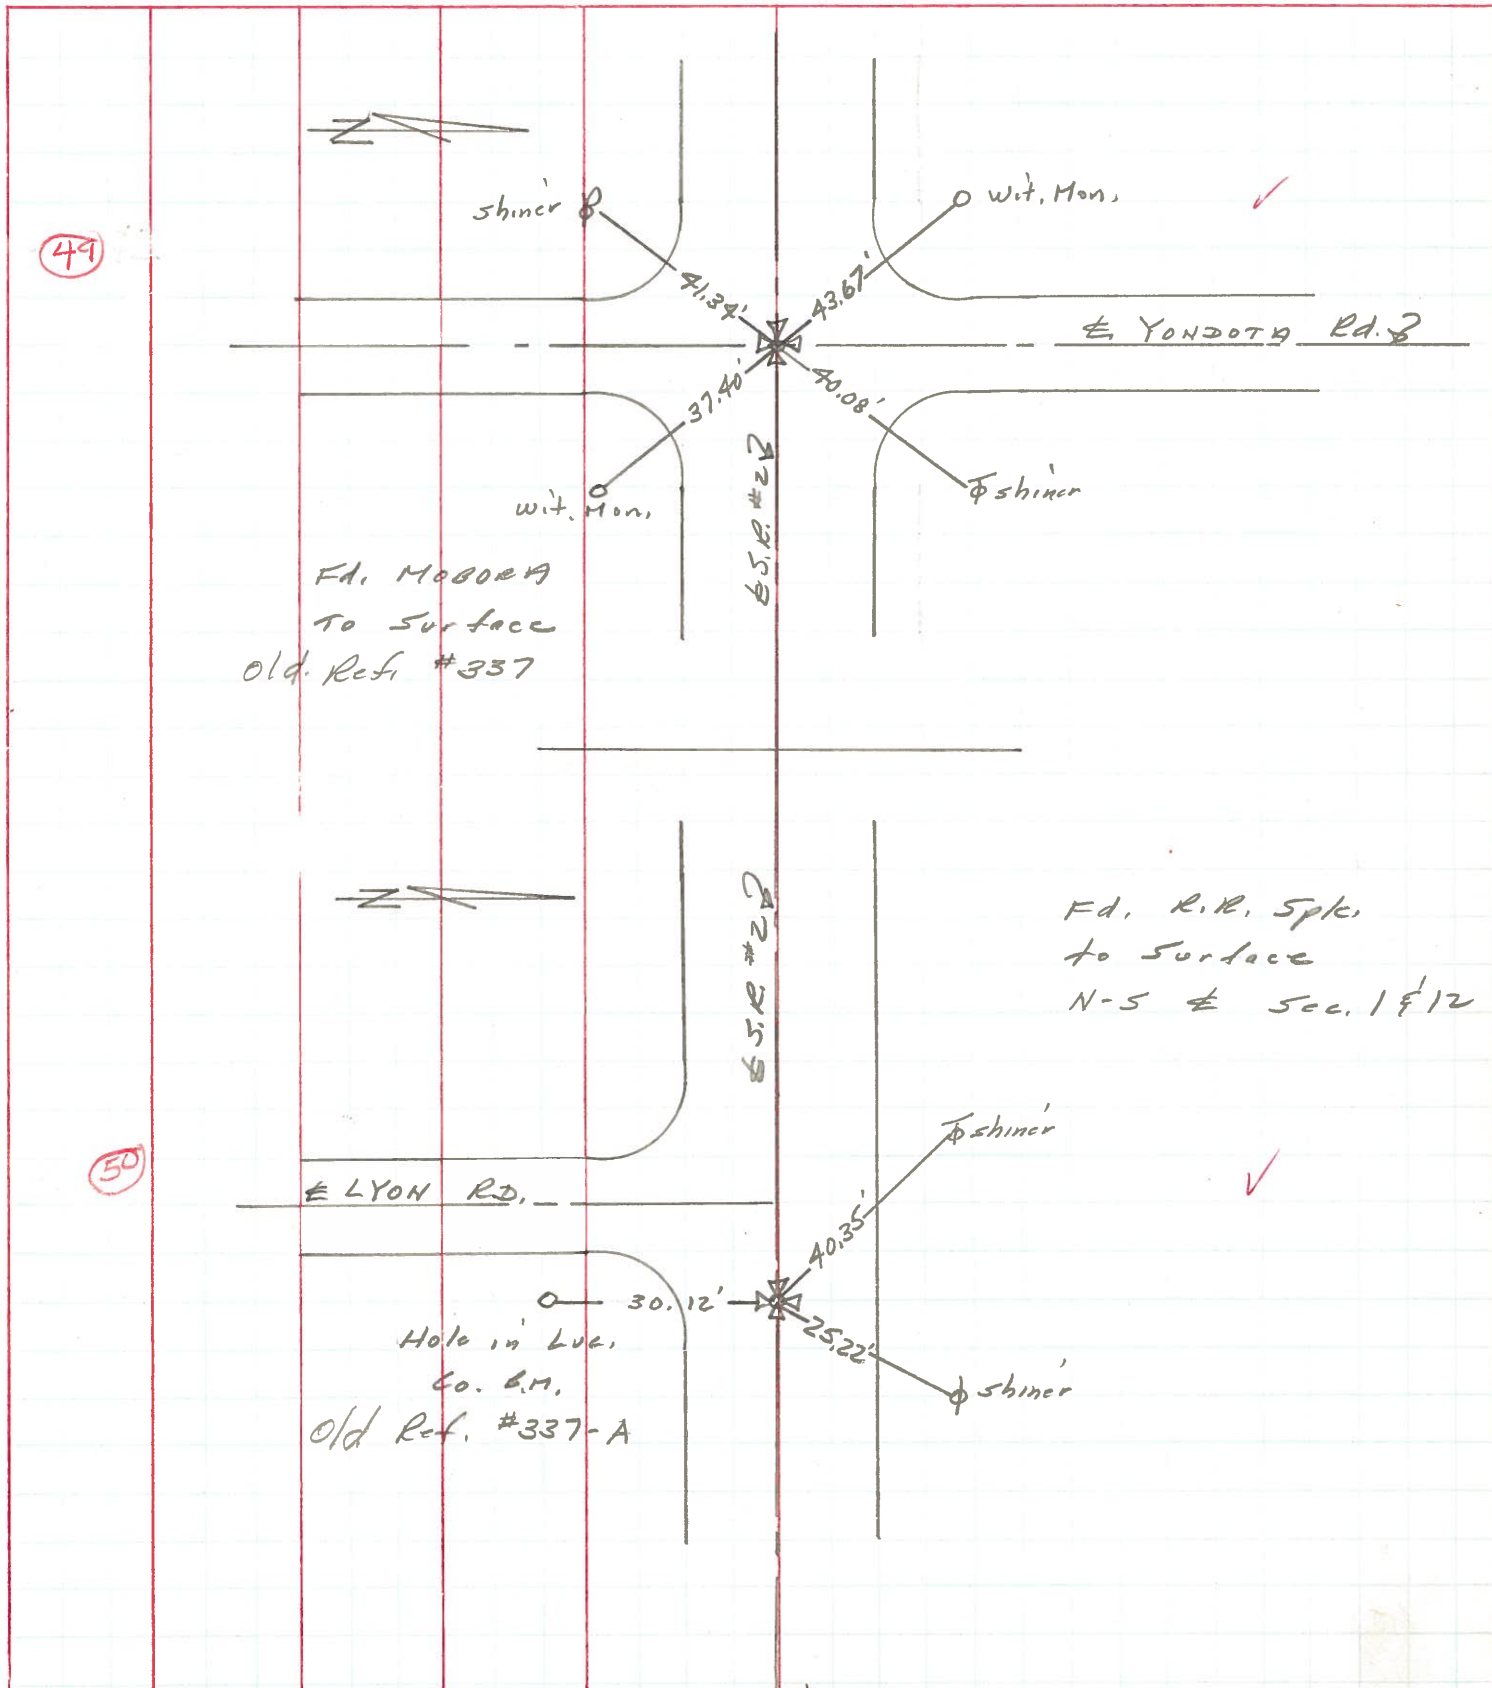 N
shiner
wit. Mon.
49
41.34'
43.67'
℄ YONDOTA Rd.
37.40'
40.08'
℄ S.R. #2
wit. Mon.
shiner
Fd. MOBORA
To Surface
Old. Ref. #337
N
℄ S.R. #2
Fd. R.R. Spk.
to Surface
N-S ℄ Sec. 1 & 12
shiner
50
℄ LYON RD.
40.35'
30.12'
25.22'
Hole in Luc.
Co. B.M.
shiner
Old Ref. #337-A